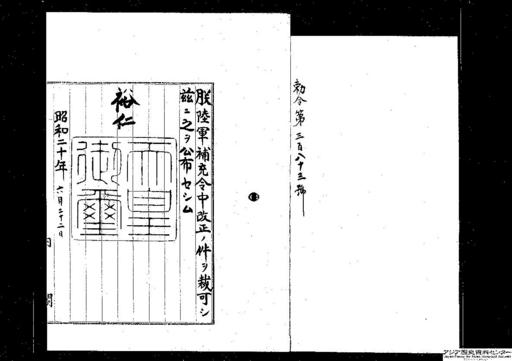 勅令第三百八十三號
朕陸軍補充令中改正ノ件ヲ裁可シ
茲ニ之ヲ公布セシム
裕仁
天皇御璽
昭和二十年六月二十二日
内閣
アジア歴史資料センター